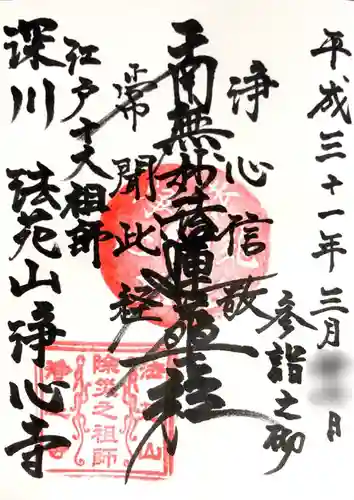 平成三十一年三月 日
参詣之砌
浄心信敬
南無妙法蓮華経
常聞此経
江戸十大祖師
深川 法苑山 浄心寺
除災之祖師